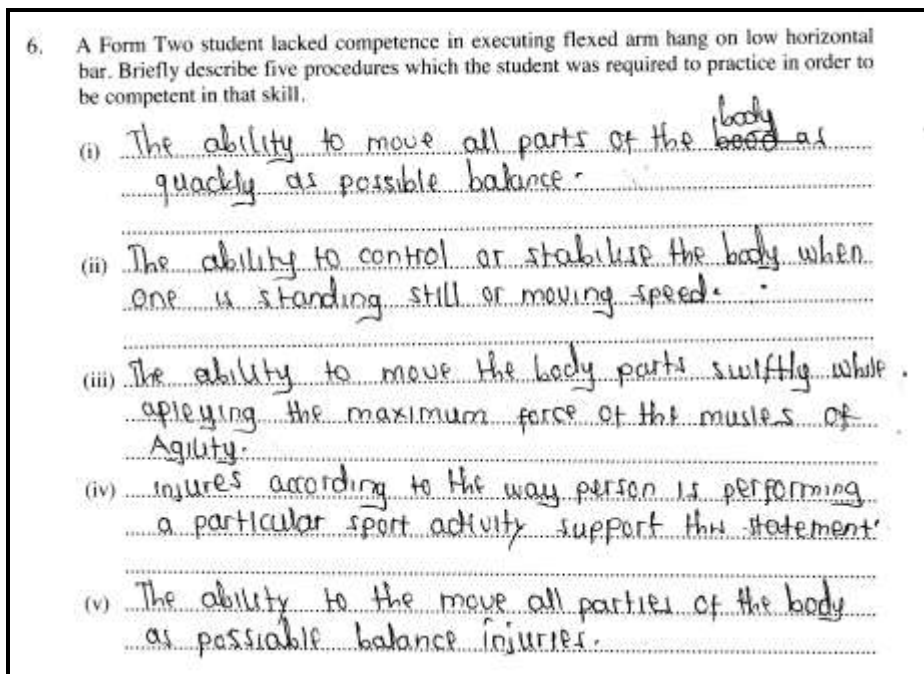 6. A Form Two student lacked competence in executing flexed arm hang on low horizontal
bar. Briefly describe five procedures which the student was required to practice in order to
be competent in that skill.
body
(i) The ability to move all parts of the as
quackly as possible balance.
(ii) The ability to control or stabilise the body when
one is standing still or moving speed.
(iii) The ability to move the body parts swiftly while
apleying the maximum force of the musles of
Agility.
(iv) injures according to the way person is performing
a particular sport activity support this statement
(v) The ability to the move all parties of the body
as possiable balance injuries.